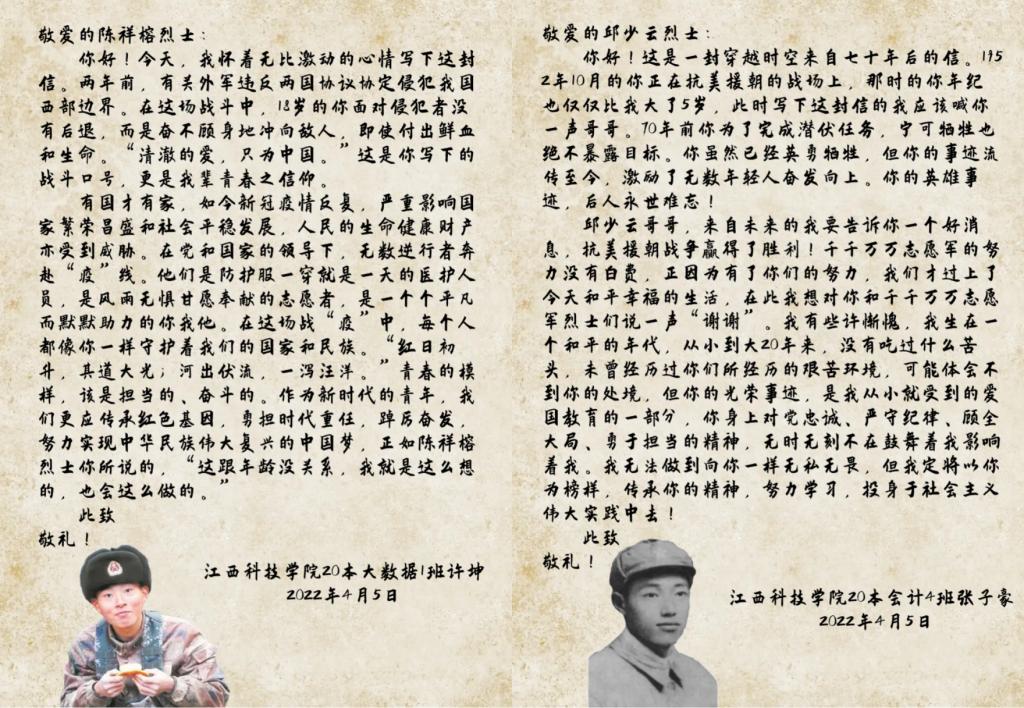 敬爱的陈祥榕烈士：
你好！今天，我怀着无比激动的心情写下这封
信。两年前，有关外军违反两国协议协定侵犯我国
西部边界。在这场战斗中，18岁的你面对侵犯者没
有后退，而是奋不顾身地冲向敌人，即使付出鲜血
和生命。“清澈的爱，只为中国。”这是你写下的
战斗口号，更是我辈青春之信仰。
有国才有家，如今新冠疫情反复，严重影响国
家繁荣昌盛和社会平稳发展，人民的生命健康财产
亦受到威胁。在党和国家的领导下，无数逆行者奔
赴“疫”线。他们是防护服一穿就是一天的医护人
员，是风雨无惧甘愿奉献的志愿者，是一个个平凡
而默默助力的你我他。在这场战“疫”中，每个人
都像你一样守护着我们的国家和民族。“红日初
升，其道大光；河出伏流，一泻汪洋。”青春的模
样，该是担当的、奋斗的。作为新时代的青年，我
们更应传承红色基因，勇担时代重任，踔厉奋发，
努力实现中华民族伟大复兴的中国梦，正如陈祥榕
烈士你所说的，“这跟年龄没关系，我就是这么想
的，也会这么做的。”
此致
敬礼！
江西科技学院20本大数据1班许坤
2022年4月5日
敬爱的邱少云烈士：
你好！这是一封穿越时空来自七十年后的信。195
2年10月的你正在抗美援朝的战场上，那时的你年纪
也仅仅比我大了5岁，此时写下这封信的我应该喊你
一声哥哥。70年前你为了完成潜伏任务，宁可牺牲也
绝不暴露目标。你虽然已经英勇牺牲，但你的事迹流
传至今，激励了无数年轻人奋发向上。你的英雄事
迹，后人永世难忘！
邱少云哥哥，来自未来的我要告诉你一个好消
息，抗美援朝战争赢得了胜利！千千万万志愿军的努
力没有白费，正因为有了你们的努力，我们才过上了
今天和平幸福的生活，在此我想对你和千千万万志愿
军烈士们说一声“谢谢”。我有些许惭愧，我生在一
个和平的年代，从小到大20年来，没有吃过什么苦
头，未曾经历过你们所经历的艰苦环境，可能体会不
到你的处境，但你的光荣事迹，是我从小就受到的爱
国教育的一部分，你身上对党忠诚、严守纪律、顾全
大局、勇于担当的精神，无时无刻不在鼓舞着我影响
着我。我无法做到向你一样无私无畏，但我定将以你
为榜样，传承你的精神，努力学习，投身于社会主义
伟大实践中去！
此致
敬礼！
江西科技学院20本会计4班张子豪
2022年4月5日